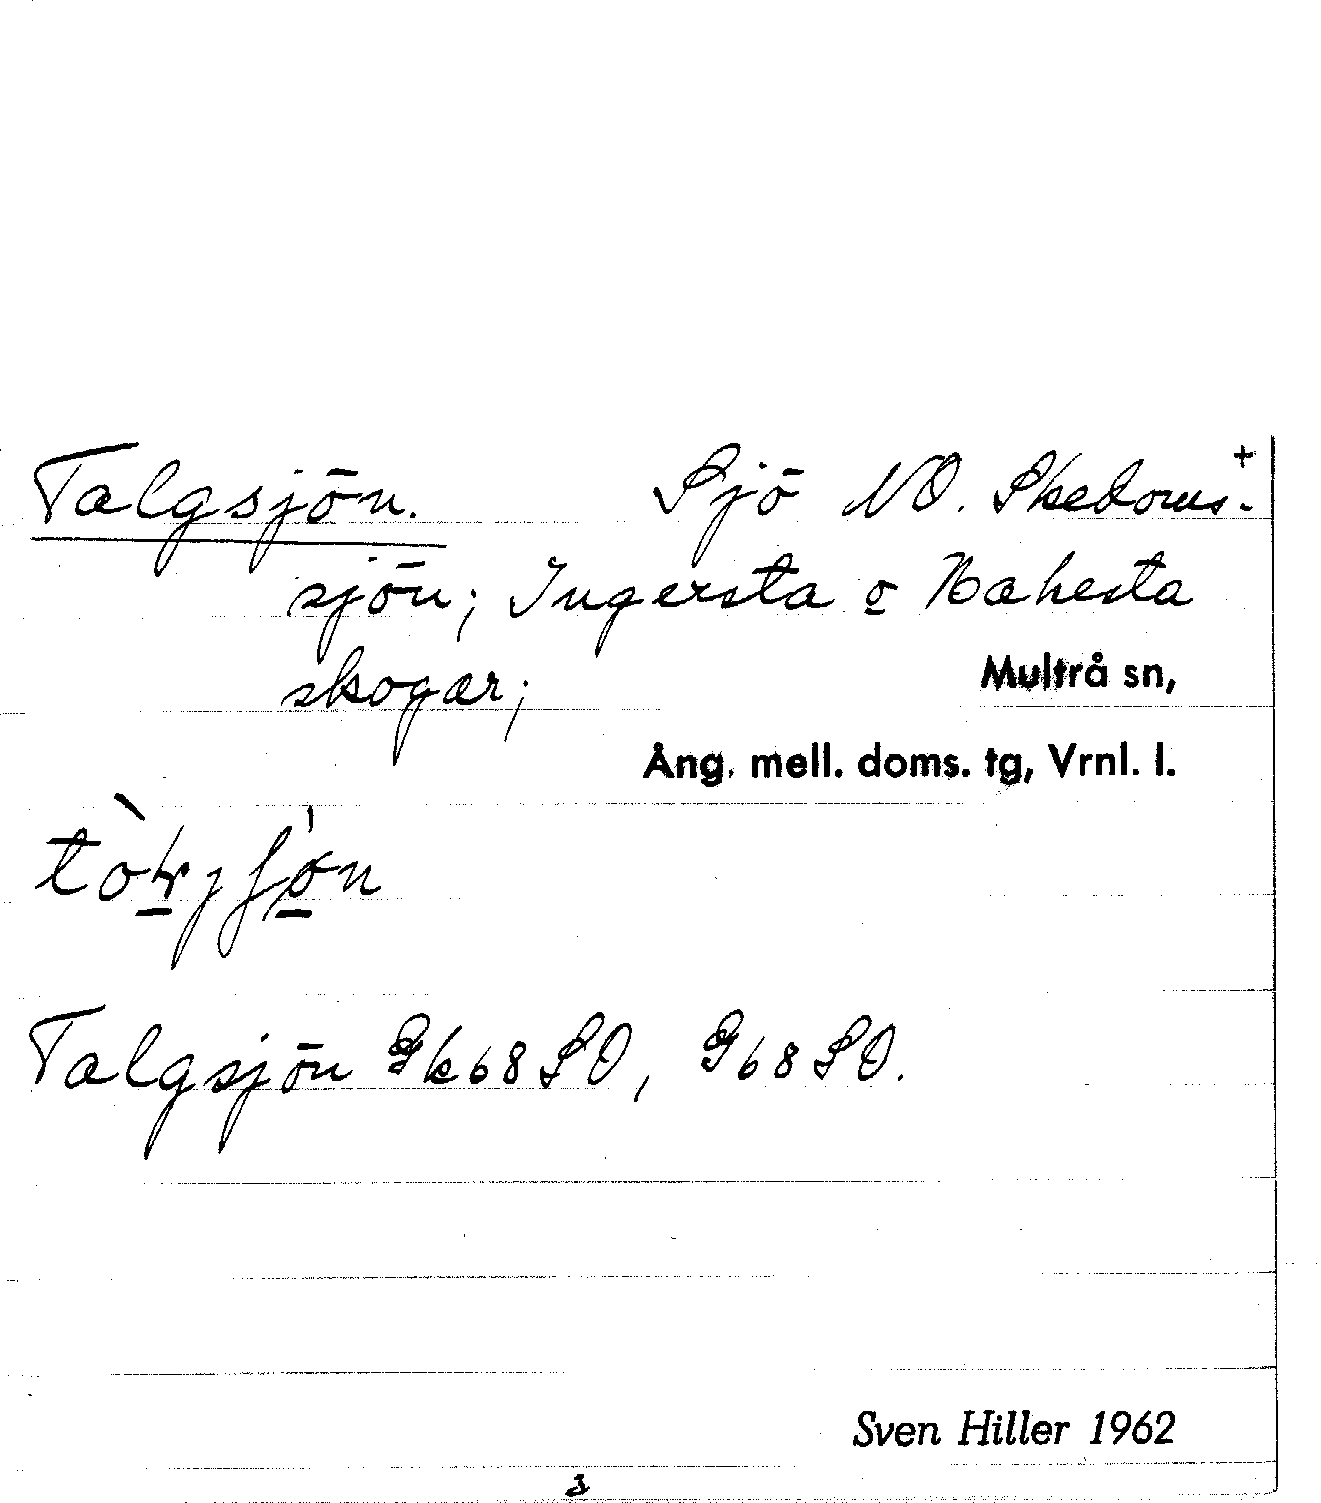 Talgsjön. Sjö NO. Skedoms-
sjön; Ingersta o Nahesta
skogar; Multrå sn,
Ång. mell. doms. tg, Vrnl. l.
Talgsjön Gk68SO, G68SO.
Sven Hiller 1962
3